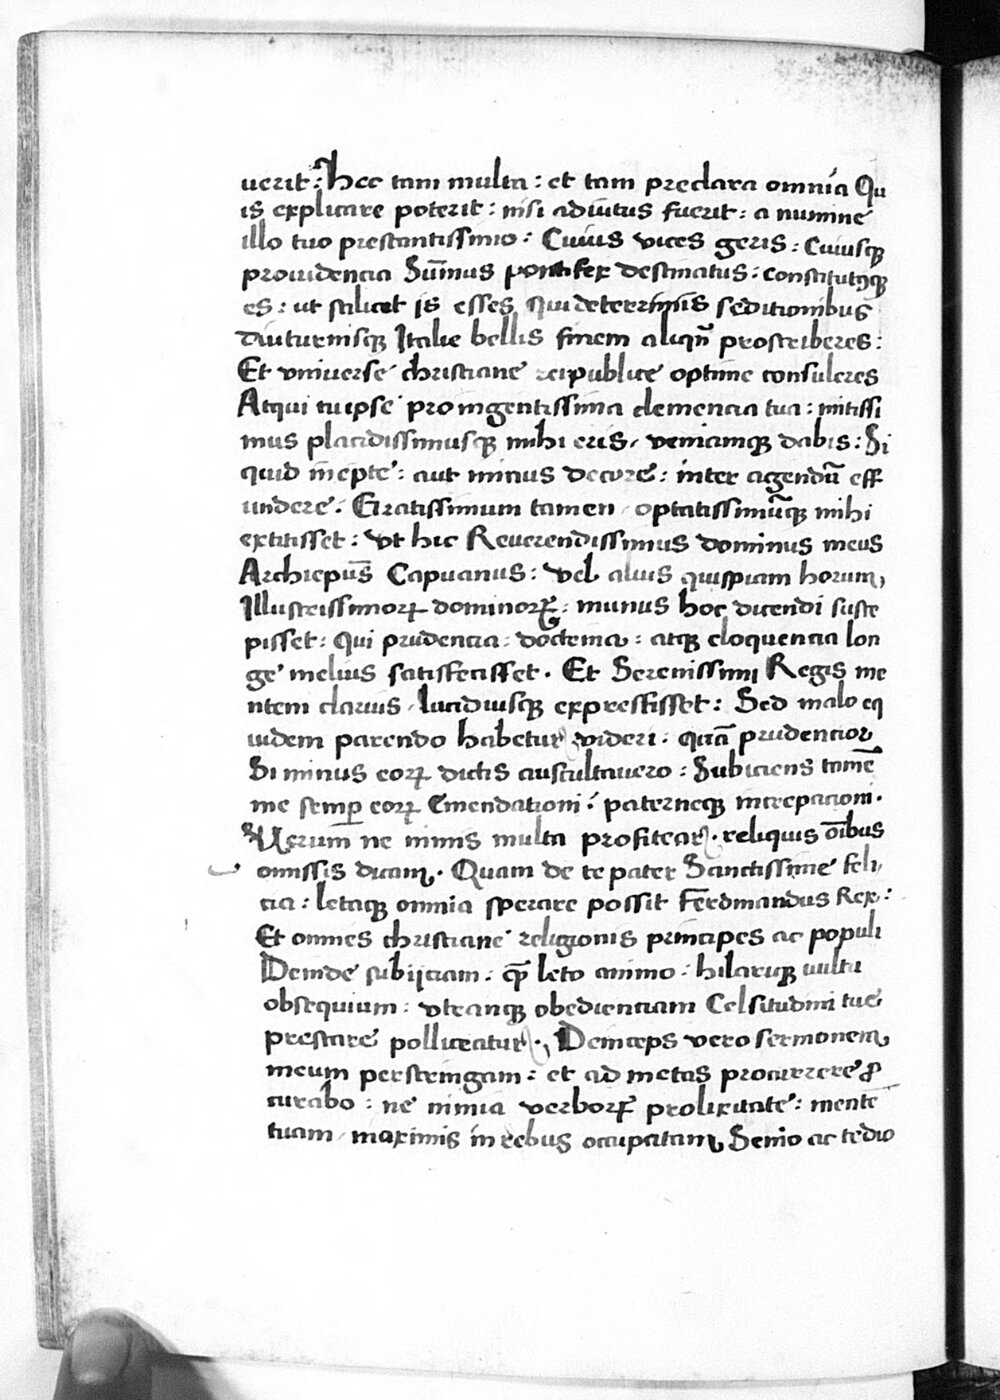 uerit: hec tam multa: et tam preclara omnia Qu
is explicare poterit: nisi adiutus fuerit: a numine
illo tuo prestantissimo: Cuius vices geris: Cuiusqꝫ
prouidencia Sūmus pontifex destinatus: constitutꝰqꝫ
es: ut scilicet is esses qui deterrimis seditionibus
diuturnisqꝫ Italie bellis finem aliqñ proscriberes:
Et vniuerse christiane reipublice optime consuleres
Atqui tu ipse pro ingentissima clemencia tua: mitissi
mus placidissimusqꝫ mihi eris, veniamqꝫ dabis: Si
quid inepte: aut minus decore: inter agendū eff
undere. Gratissimum tamen optatissimūqꝫ mihi
extitisset: vt hic Reuerendissimus dominus meus
Archiepūs Capuanus: vel alius quispiam horum,
Illustrissimorꝝ dominorꝝ: munus hoc dicendi susce
pisset: qui prudencia: doctrina: atqꝫ eloquencia lon
ge melius satisfecisset. Et Serenissimi Regis me
ntem clarius, lucidiusqꝫ expressisset: Sed malo eq
uidem parendo habetur videri: quā prudencior
Si minus eorꝝ dictis auscultauero: Subiciens tamē
me semꝑ eorꝝ Emendationi: paterneqꝫ increpacioni.
Verum ne nimis multa profitear. reliquis oībus
omissis dicam. Quam de te pater Sanctissime feli
cia: letaqꝫ omnia sperare possit Ferdinandus Rex:
Et omnes christiane religionis principes ac populi
Deinde subijciam: qꝫ leto animo: hilariqꝫ uultu
obsequium: vtranqꝫ obedienciam Celsitudini tue
prestare polliceatur. Deinceps vero sermonem
meum perstringam: et ad metas procurrere ꝓ
curabo: ne nimia verborꝝ prolixitate: mentē
tuam, maximis in rebus occupatam, Senio ac tedio